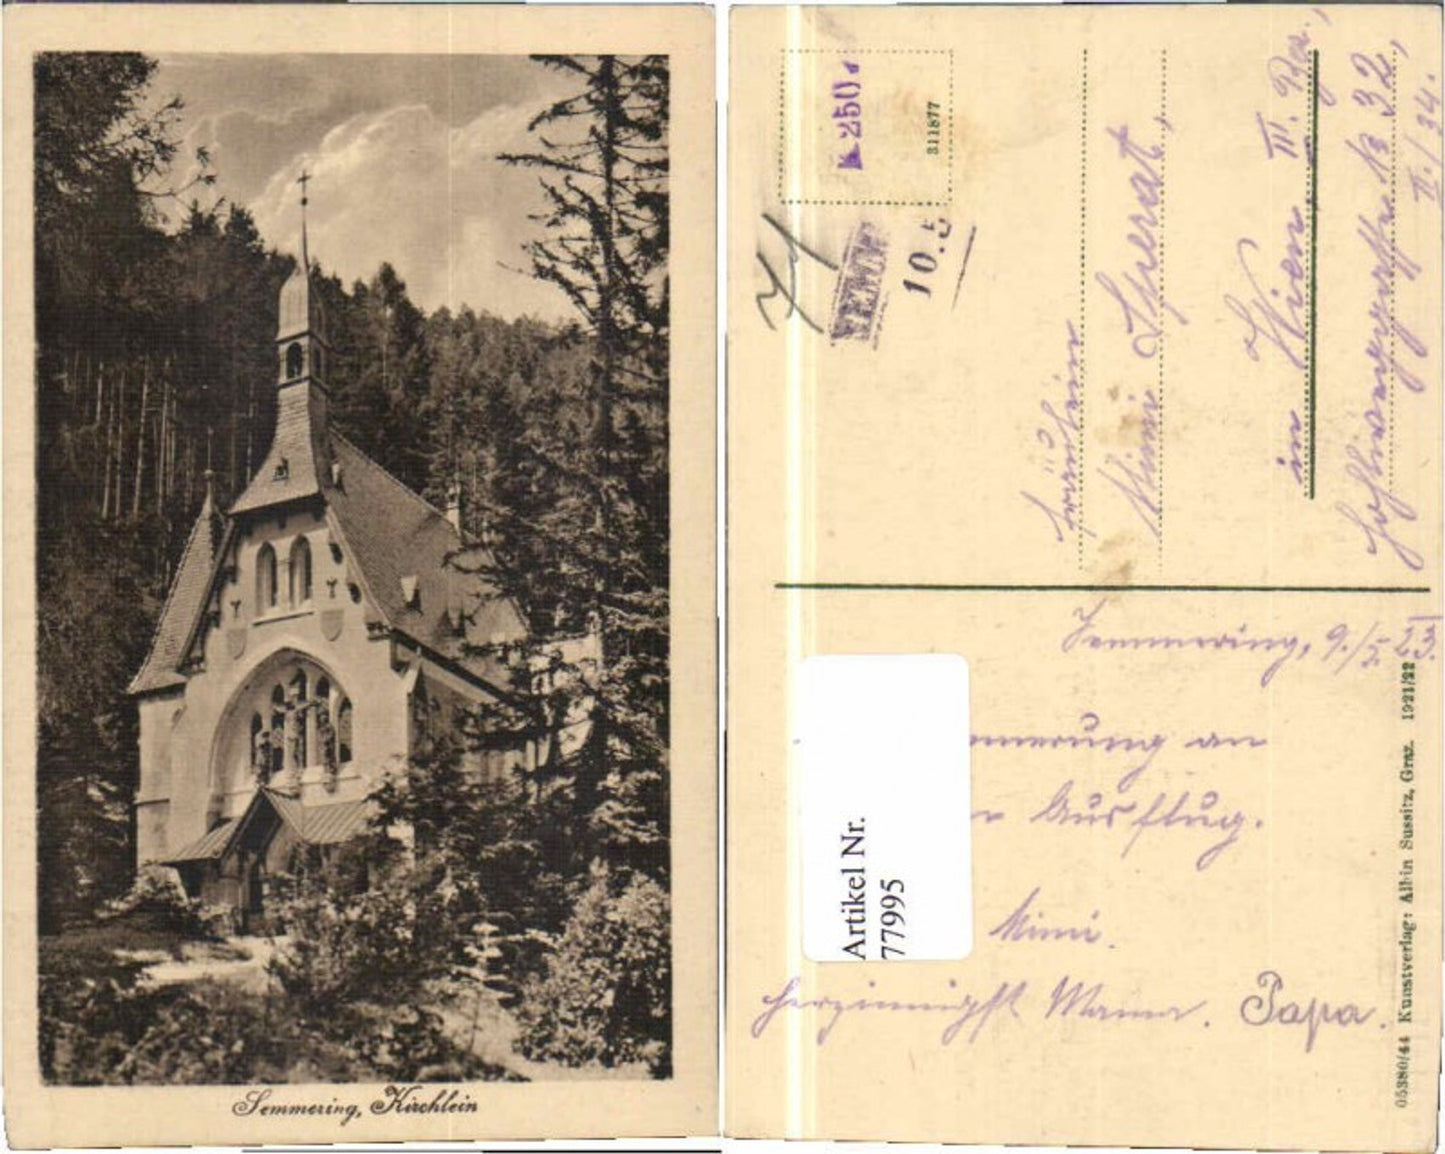 Semmering, Kirchlein
250
311877
10. 5
71
Fräulein
Mimi Sperat,
in Wien III. Bez.,
Hohlweggasse № 32,
II./34.
Semmering, 9./5. 23.
nnerung an
r Ausflug.
Mimi.
herzinnigst Mama. Papa.
Artikel Nr.
77995
05380/44 Kunstverlag: Albin Sussitz, Graz. 1921/22